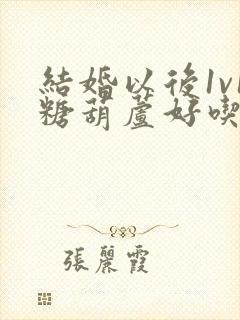 結婚以後1v1
糖葫蘆好喫
張麗霞